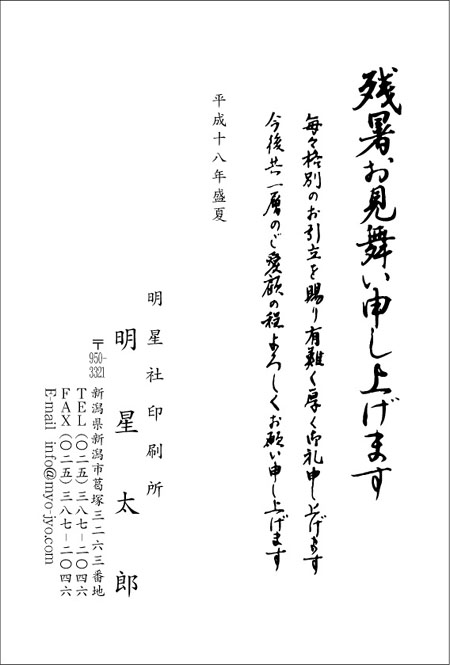 残暑お見舞い申し上げます
毎々格別のお引立を賜り有難く厚く御礼申し上げます
今後共一層のご愛顧の程よろしくお願い申し上げます
平成十八年盛夏
明星社印刷所
明星太郎
〒950-3321
新潟県新潟市葛塚三二六三番地
TEL(〇二五)三八七-二〇四六
FAX(〇二五)三八七-二〇四六
E-mail info@myo-jyo.com